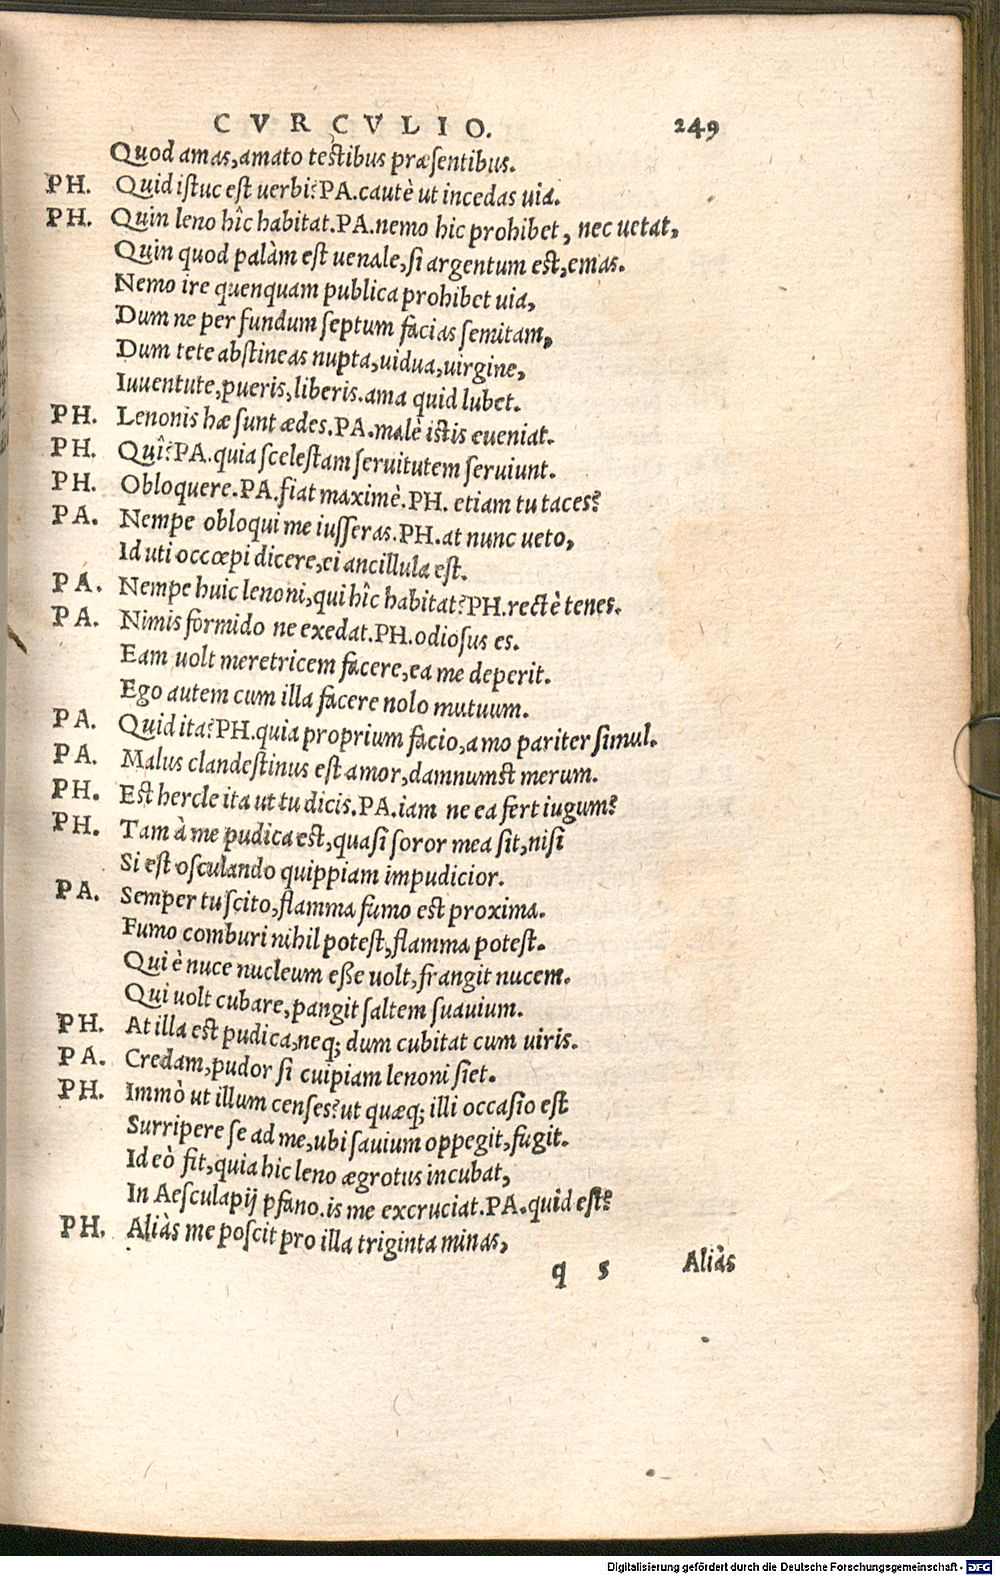 CVRCVLIO. 249
Quod amas, amato testibus præsentibus.
PH. Quid istuc est uerbi? PA. cautè ut incedas uia.
PH. Quin leno hîc habitat. PA. nemo hic prohibet, nec uetat,
Quin quod palàm est uenale, si argentum est, emas.
Nemo ire quenquam publica prohibet uia,
Dum ne per fundum septum facias semitam,
Dum tete abstineas nupta, uidua, uirgine,
Iuuentute, pueris, liberis. ama quid lubet.
PH. Lenonis hæ sunt ædes. PA. malè istis eueniat.
PH. Quî? PA. quia scelestam seruitutem seruiunt.
PH. Obloquere. PA. fiat maximè. PH. etiam tu taces?
PA. Nempe obloqui me iusseras. PH. at nunc ueto,
Id uti occœpi dicere, ei ancillula est.
PA. Nempe huic lenoni, qui hîc habitat? PH. rectè tenes.
PA. Nimis formido ne exedat. PH. odiosus es.
Eam uolt meretricem facere, ea me deperit.
Ego autem cum illa facere nolo mutuum.
PA. Quid ita? PH. quia proprium facio, amo pariter simul.
PA. Malus clandestinus est amor, damnumst merum.
PH. Est hercle ita ut tu dicis. PA. iam ne ea fert iugum?
PH. Tam à me pudica est, quasi soror mea sit, nisi
Si est osculando quippiam impudicior.
PA. Semper tu scito, flamma fumo est proxima.
Fumo comburi nihil potest, flamma potest.
Qui è nuce nucleum esse uolt, frangit nucem.
Qui uolt cubare, pangit saltem suauium.
PH. At illa est pudica, neq; dum cubitat cum uiris.
PA. Credam, pudor si cuipiam lenoni siet.
PH. Immò ut illum censes? ut quæq; illi occasio est
Surripere se ad me, ubi sauium oppegit, fugit.
Id eò fit, quia hic leno ægrotus incubat,
In Aesculapij pfano. is me excruciat. PA. quid est?
PH. Aliàs me poscit pro illa triginta minas,
q 5 Aliàs
Digitalisierung gefördert durch die Deutsche Forschungsgemeinschaft - DFG